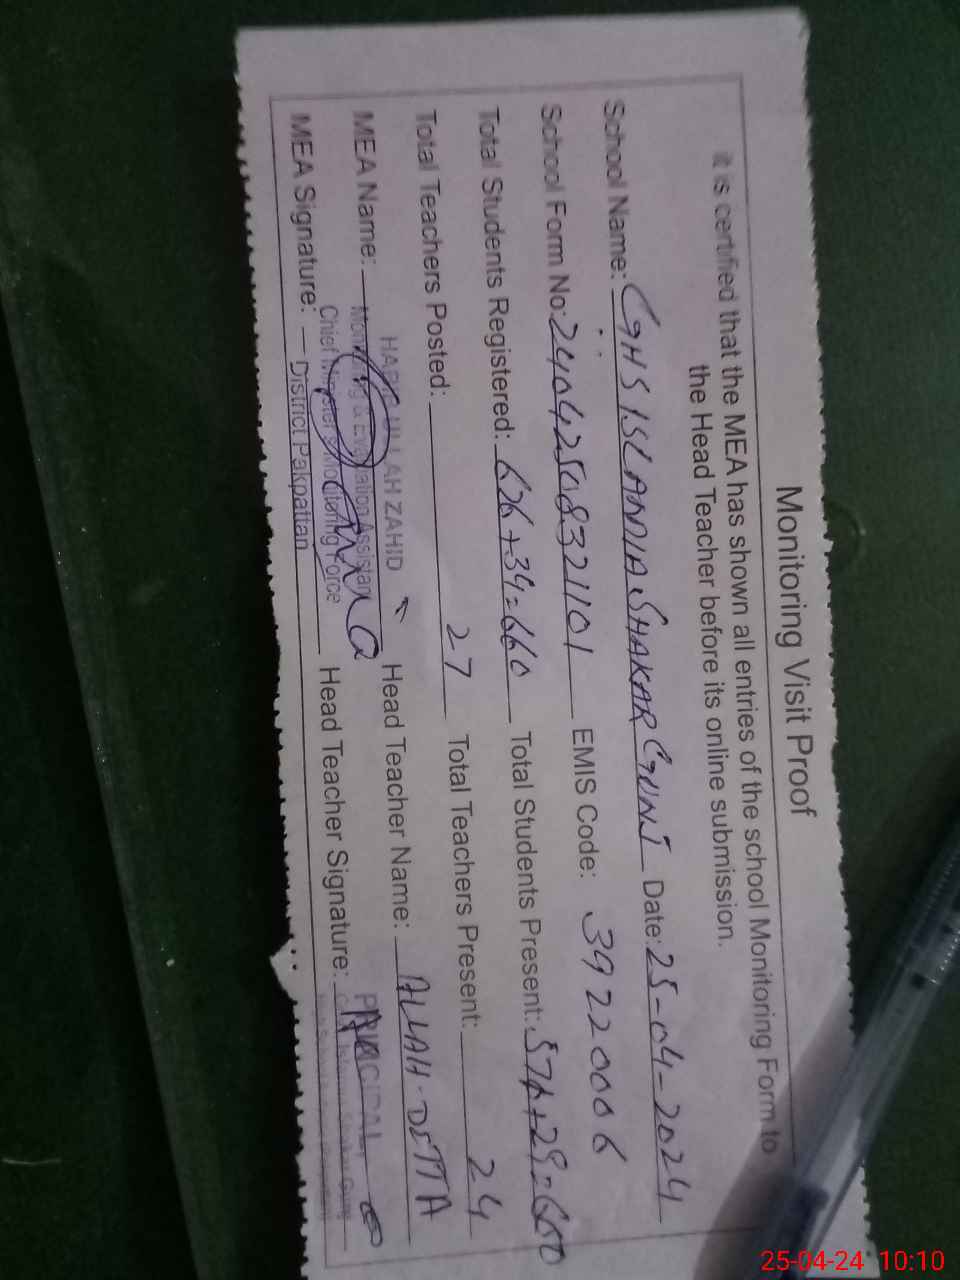 Monitoring Visit Proof
it is certified that the MEA has shown all entries of the school Monitoring Form to
the Head Teacher before its online submission.
School Name: GHS ISLAMIA SHAKAR GUNJ Date: 25-04-2024
School Form No: 24042508321101 EMIS Code: 39220006
Total Students Registered: 626+34=660 Total Students Present:
Total Teachers Posted: 27 Total Teachers Present: 24
ULLAH ZAHID
MEA Name: Monitoring & Evaluation Assistant Head Teacher Name: ALLAH DITTA
Chief Minister's Monitoring Force
MEA Signature: District Pakpattan Head Teacher Signature: PRINCIPAL
25-04-24 10:10